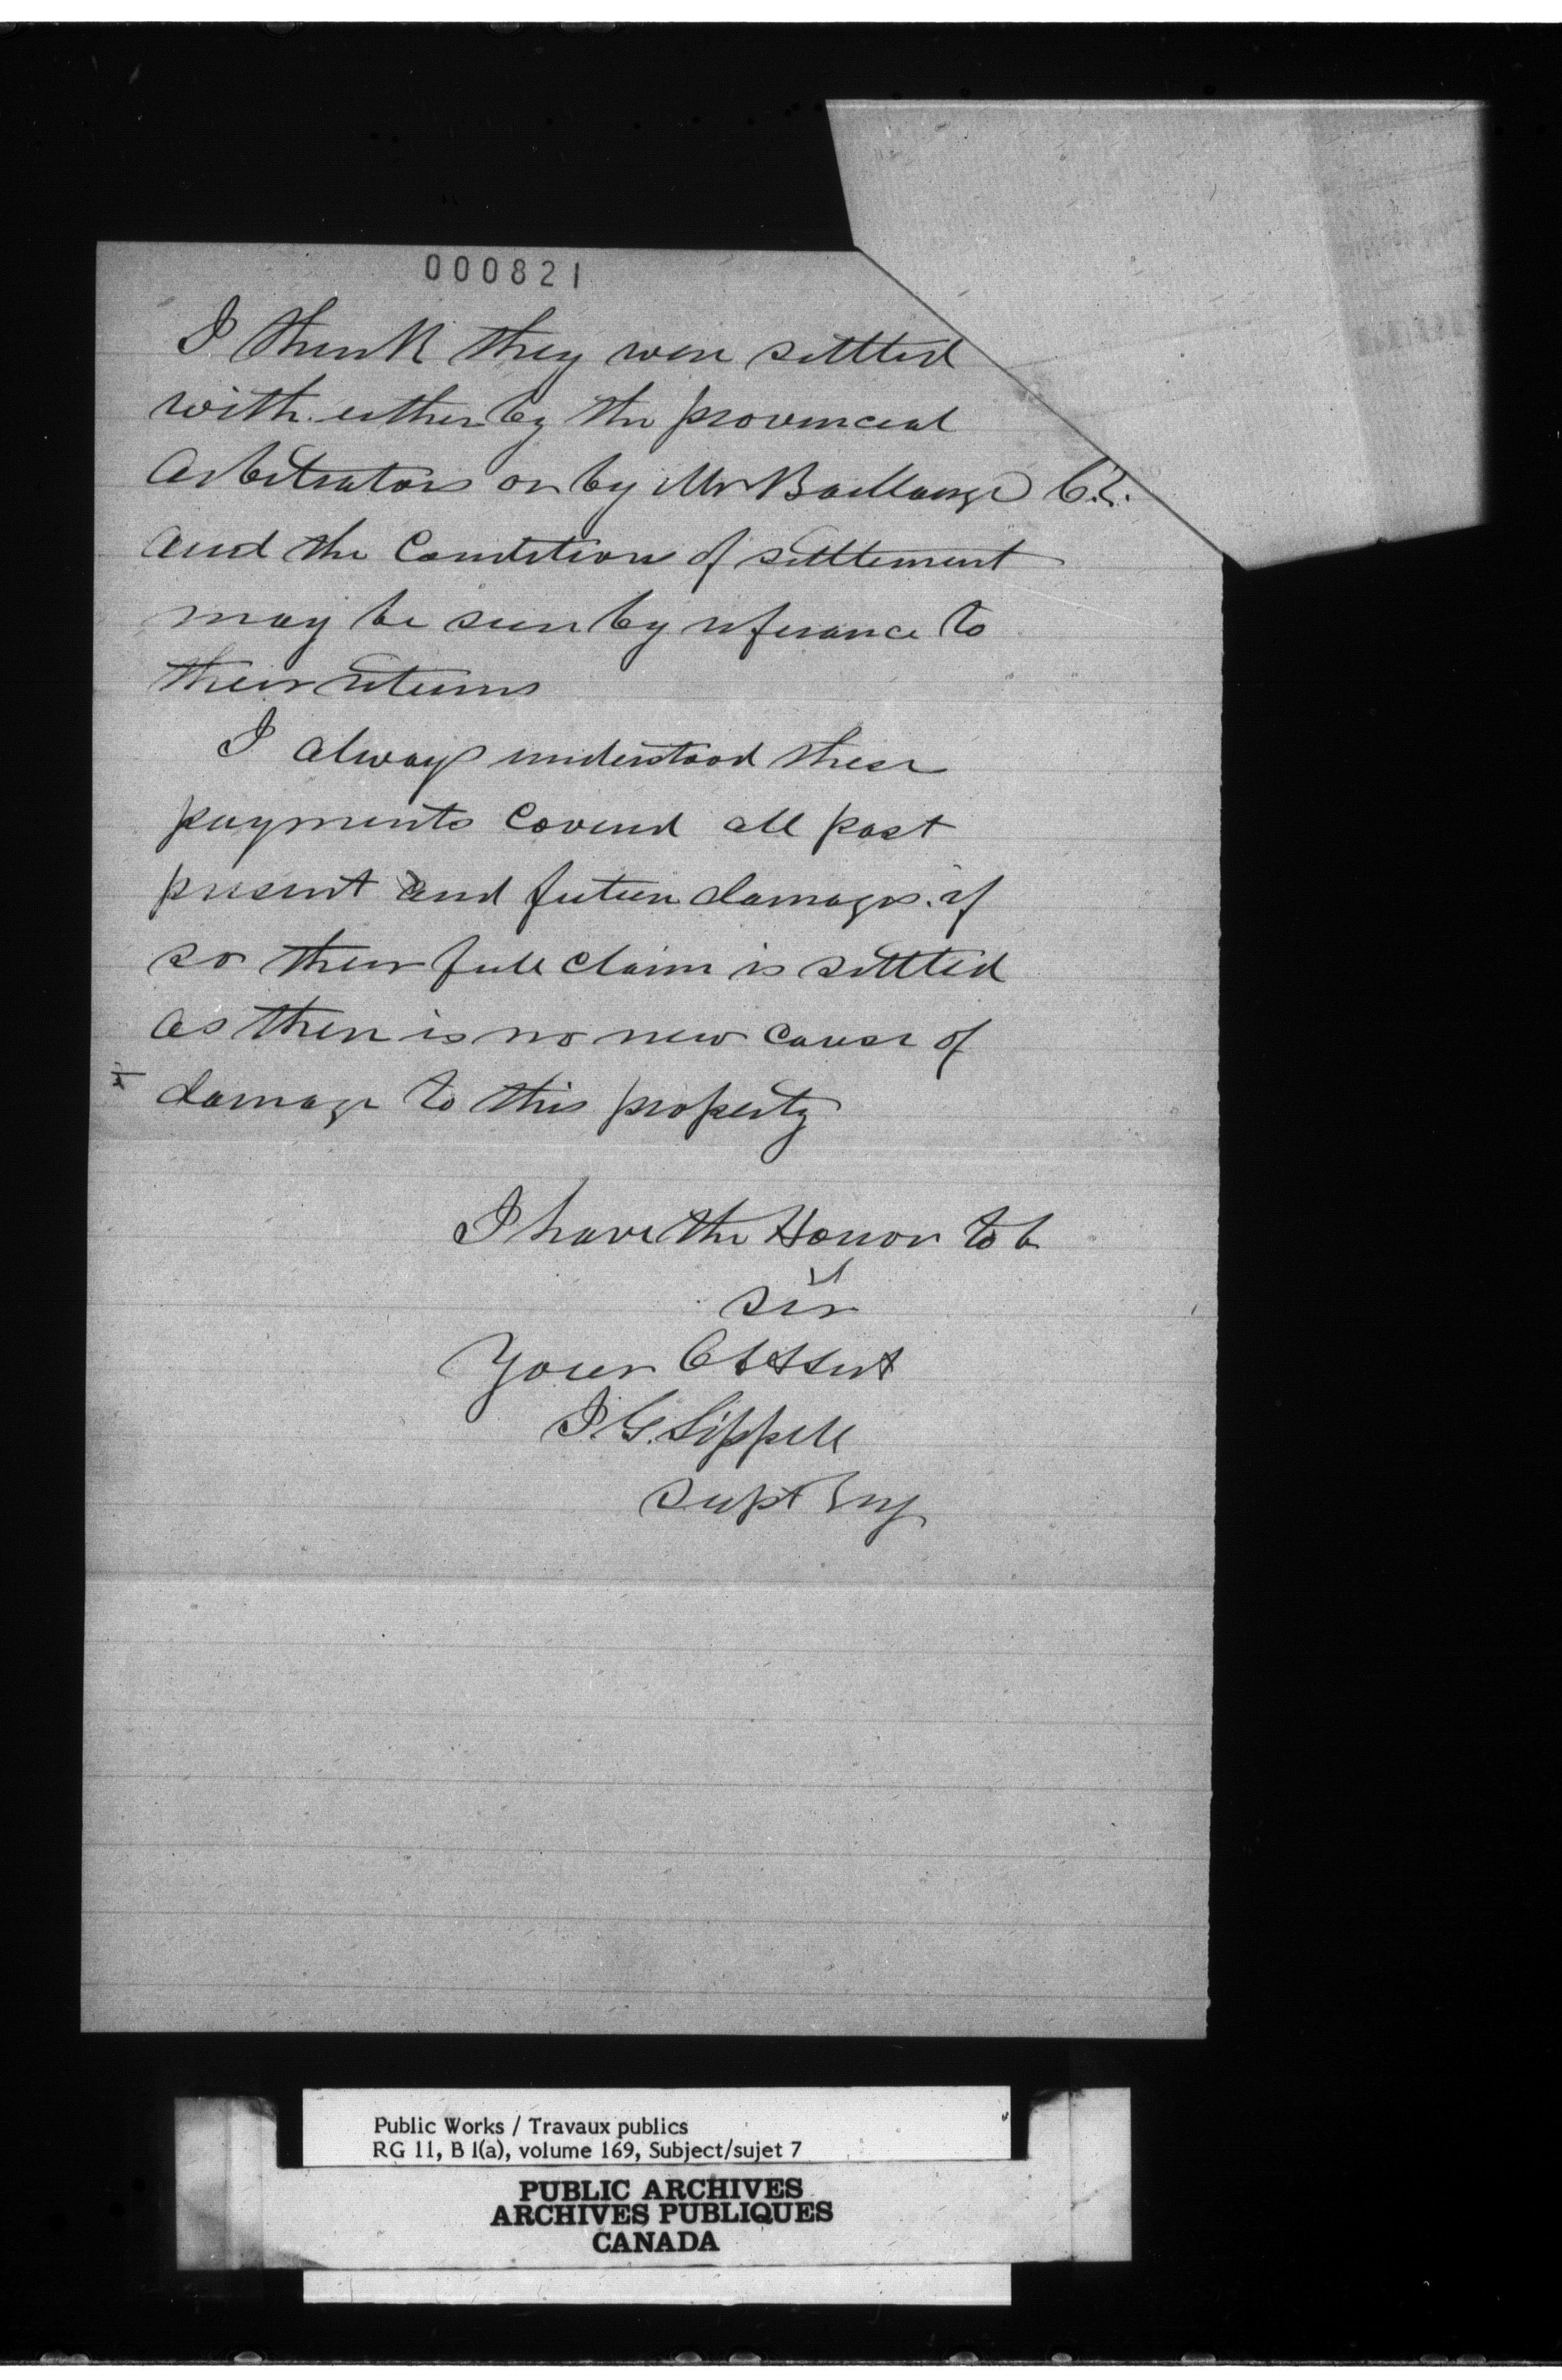 000821
I think they were settled
with either by the provincial
Arbitrators or by Mr Baillairgé C.E.
and the Condition of settlement
may be seen by referance to
their returns
I always understood these
payments Covered all past
present and future damages. if
so their full claim is settled
as there is no new cause of
damage to this property
I have the Honor to b
sir
Your Obt Svt
J. G. Sippell
Supt Eng
Public Works / Travaux publics
RG 11, B 1(a), volume 169, Subject/sujet 7
PUBLIC ARCHIVES
ARCHIVES PUBLIQUES
CANADA